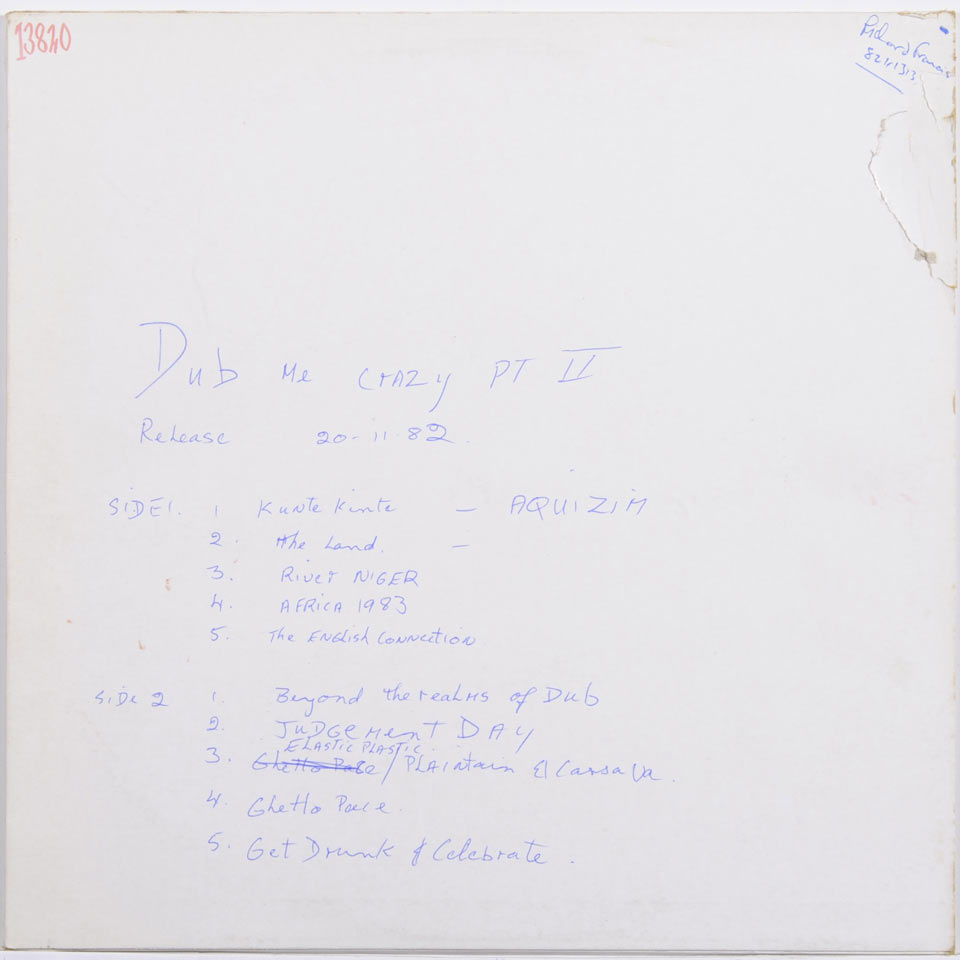 13820
Richard Francis
Dub Me Crazy PT II
Release 20-11-82.
SIDE 1. 1 Kunte Kinte — AQUIZIM
2. the Land. —
3. River NIGER
4. AFRICA 1983
5. The ENGLish Connection
SiDe 2 1. Beyond the realms of Dub
2. JuDGeMent DAy
ELASTIC PLASTIC
3. Ghetto Pace / PLAintain & Cassava.
4. Ghetto Pace.
5. Get Drunk & Celebrate.